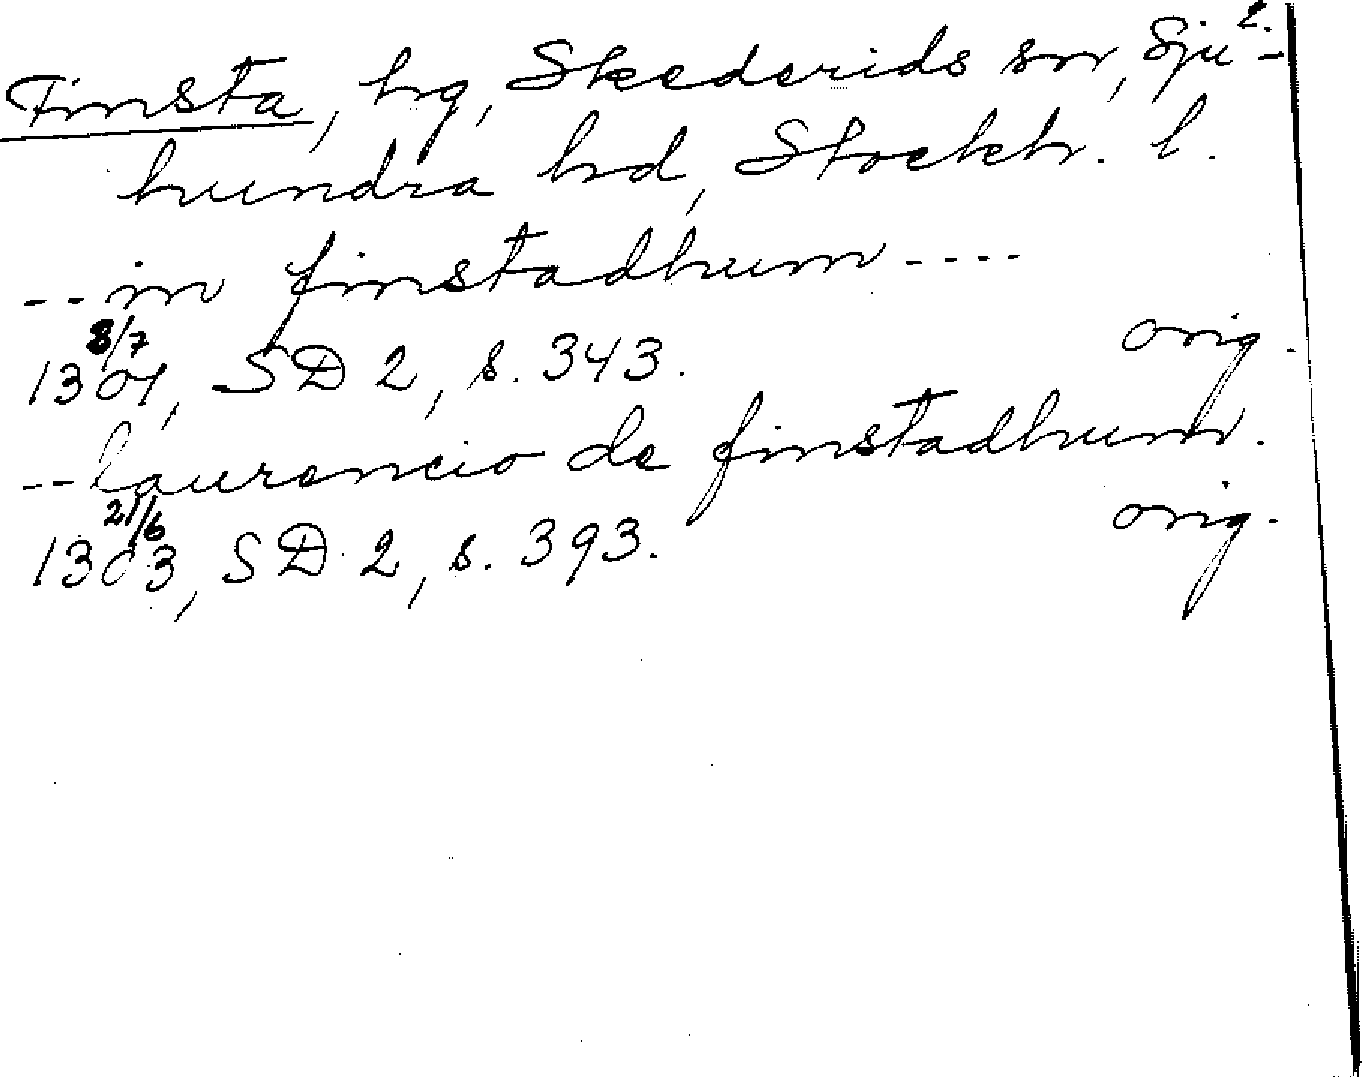 2.
Finsta, hg, Skederids sn, Sju-
hundra hd, Stockh. l.
--in finstadhum----
8/7
1301, SD 2, s. 343. orig.
--laurencio de finstadhum.
21/6
1303, SD 2, s. 393. orig.